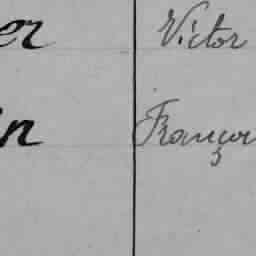 er Victor
in Françoi